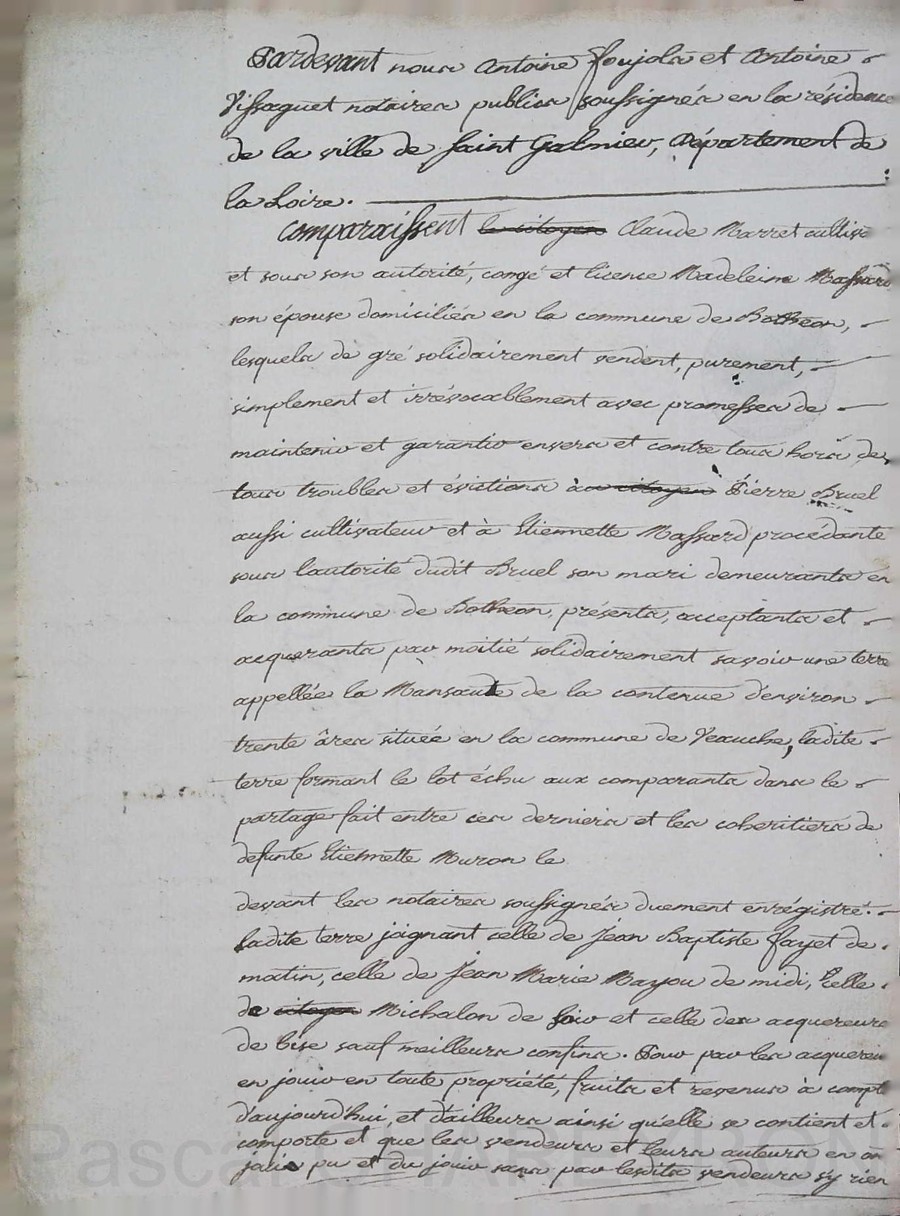 Pardevant nous Antoine Foujols et Antoine
Vissaguet notaires publics soussignés en la résidence
de la ville de Saint Galmier, département de
la Loire.
Comparaissent le citoyen Claude Marret cultiv
et sous son autorité, congé et licence Madeleine Massard
son épouse domiciliés en la commune de Botheon,
lesquels de gré solidairement vendent, purement,
simplement et irrévocablement avec promesses de
maintenir et garantir envers et contre tous hors de
tous troubles et évictions à au citoyen Pierre Bruel
aussi cultivateur et à Etiennette Massard procédante
sous l'autorité dudit Bruel son mari demeurants en
la commune de Botheon, présents, acceptants et
acquerants par moitié solidairement savoir une terre
appellée la Mansaude de la contenue d'environ
trente âres située en la commune de Veauche, ladite
terre formant le lot échu aux comparants dans le
partage fait entre ces derniers et les coheritiers de
defunte Etiennette Muron le
devant les notaires soussignés duement enrégistré.
ladite terre joignant celle de Jean Baptiste Fayet de
matin, celle de Jean Marie Mayou de midi, celle
de citoyen Michalon de soir et celle des acquereurs
de bise sauf meilleurs confins. Pour par les acquereu
en jouir en toute propriété, fruits et revenus à compte
d'aujourd'hui, et d'ailleurs ainsi qu'elle se contient et
comporte et que les vendeurs et leurs auteurs en on
jouis pu et du jouir sans par lesdits vendeurs s'y rien